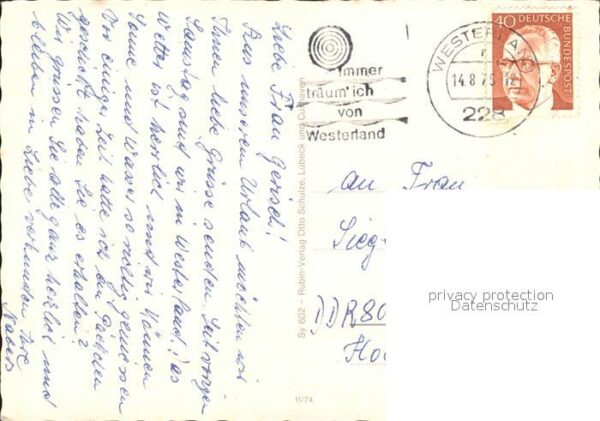 Liebe Frau Gerisch!
Aus unserem Urlaub möchten wir
Ihnen liebe Grüsse senden. Seit vorigen
Samstag sind wir in Westerland. Das
Wetter ist herrlich und wir können
Sonne und Wasser so richtig geniessen
Vor einiger Zeit hatte ich ein Päckchen
geschickt haben Sie es erhalten?
Wir grüssen Sie alle ganz herzlich und
bleiben in Liebe verbunden Ihre
Immer
träum' ich
von
Westerland
WESTERLAND
14.8.75
228
40 DEUTSCHE
BUNDESPOST
Sy 602 - Rubin-Verlag Otto Schulze, Lübeck und Cuxhaven
11/74
An Frau
Sieg
DDR 80
privacy protection
Datenschutz